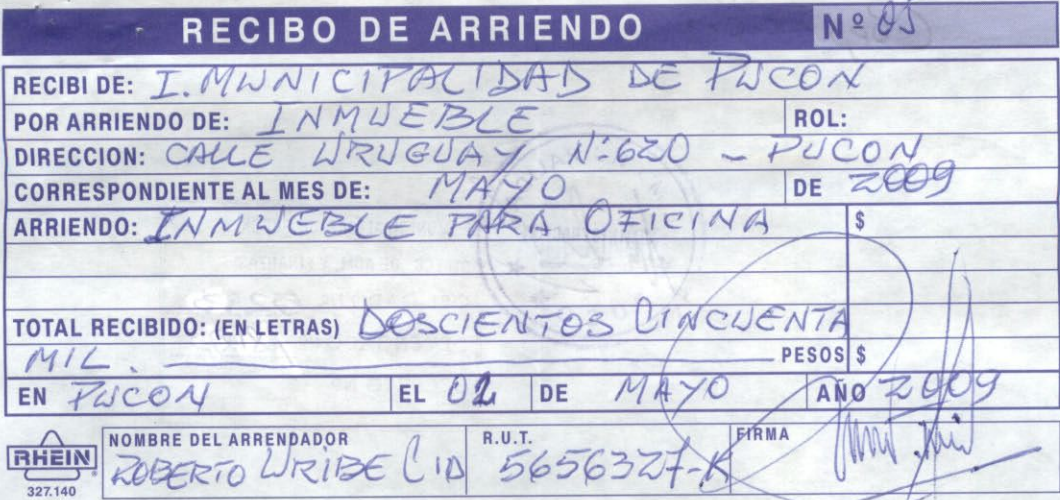 RECIBO DE ARRIENDO Nº 05
RECIBI DE: I. MUNICIPALIDAD DE PUCON
POR ARRIENDO DE: INMUEBLE ROL:
DIRECCION: CALLE URUGUAY Nº 620 - PUCON
CORRESPONDIENTE AL MES DE: MAYO DE 2009
ARRIENDO: INMUEBLE PARA OFICINA $
TOTAL RECIBIDO: (EN LETRAS) DOSCIENTOS CINCUENTA
MIL. PESOS $
EN PUCON EL 02 DE MAYO AÑO 2009
RHEIN
327.140
NOMBRE DEL ARRENDADOR R.U.T. FIRMA
ROBERTO URIBE CID 5656327-K